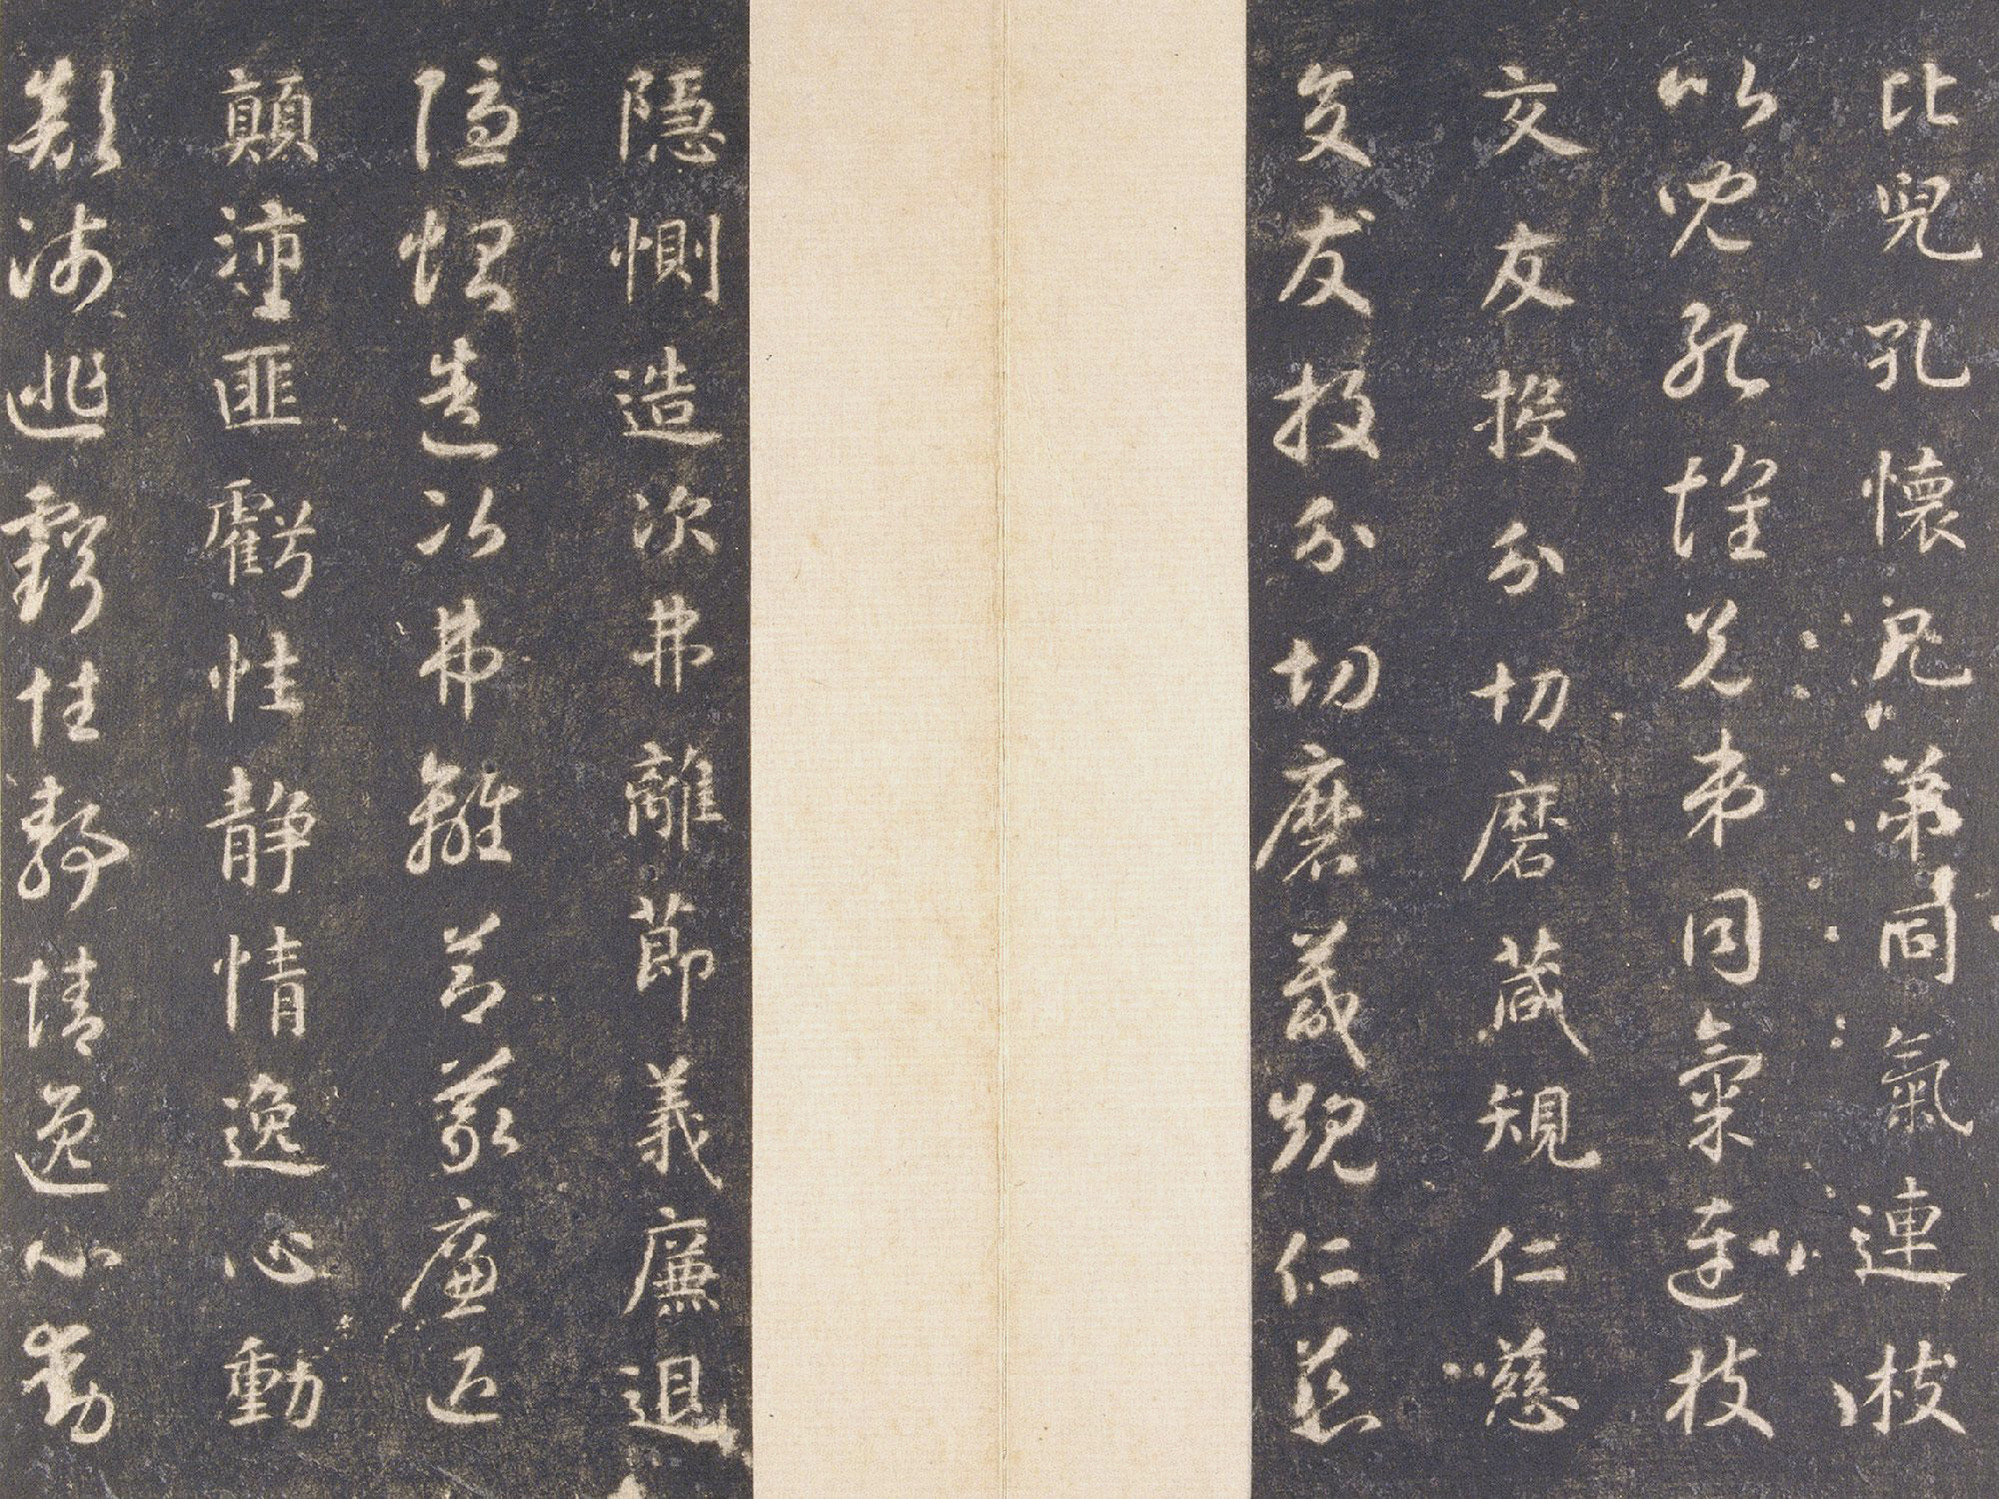 比兒孔懷兄弟同氣連枝
比兒孔懷兄弟同氣連枝
交友投分切磨箴規仁慈
交友投分切磨箴規仁慈
隱惻造次弗離節義廉退
隱惻造次弗離節義廉退
顛沛匪虧性静情逸心動
顛沛匪虧性静情逸心動